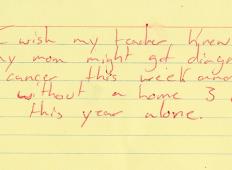 I wish my teacher knew
my mom might get diagn
cancer this week and
without a home 3
this year alone.